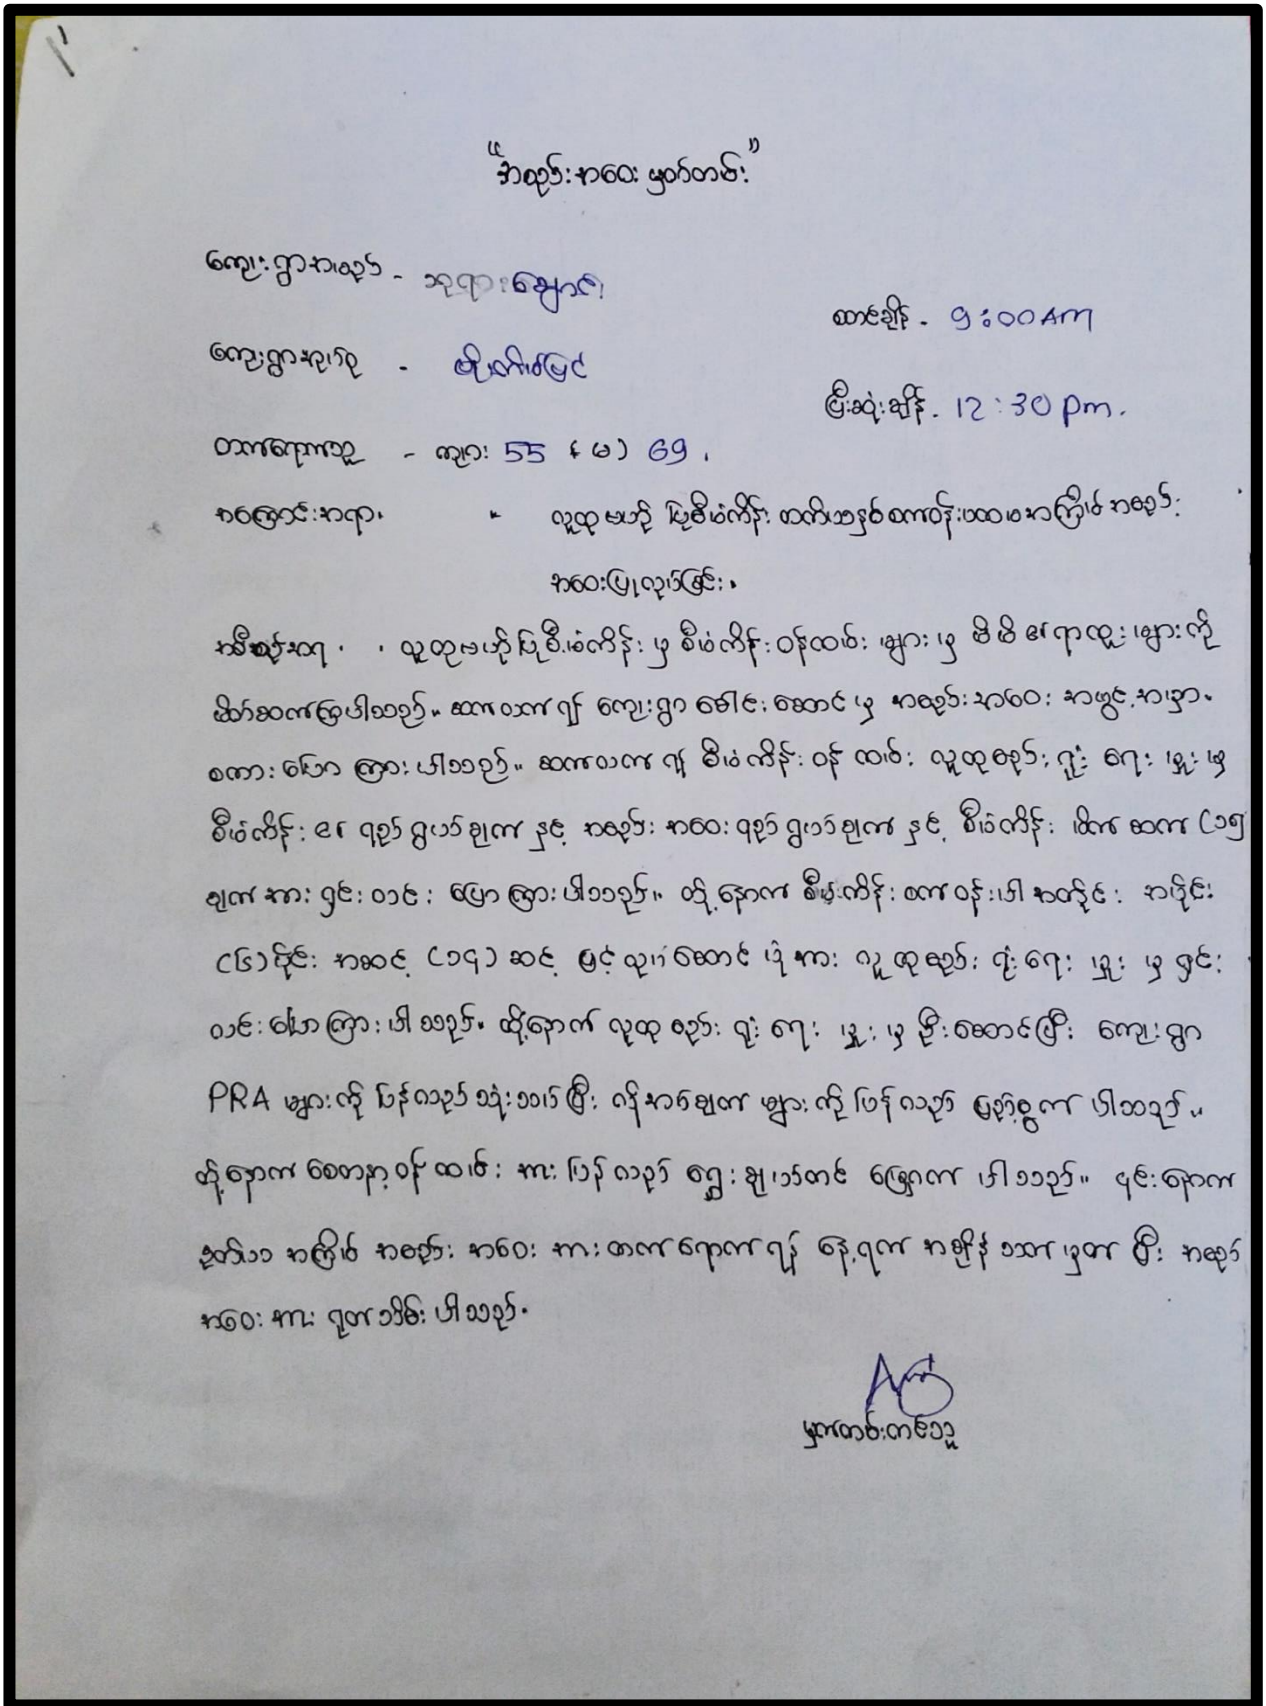 "အစည်းအဝေး မှတ်တမ်း"
ကျေးရွာအမည် - ဘုရားချောင်း
စတင်ချိန် - 9:00 AM
ကျေးရွာအုပ်စု -
ပြီးဆုံးချိန် - 12:30 pm.
တက်ရောက်သူ - ကျား 55 (မ) 69.
အကြောင်းအရာ လူထုဗဟိုပြုစီမံကိန်း တတိယနှစ်စက်ဝန်းပထမအကြိမ်အစည်း
အဝေးပြုလုပ်ခြင်း။
လူထုဗဟိုပြုစီမံကိန်း မှ စီမံကိန်းဝန်ထမ်း များ မှ မိမိ၏ရာထူးများကို
မိတ်ဆက်ကြပါသည်။ ဆက်လက်၍ ကျေးရွာခေါင်းဆောင် မှ အစည်းအဝေး အဖွင့်အမှာ
စကား ပြောကြားပါသည်။ ဆက်လက်၍ စီမံကိန်း ဝန်ထမ်း လူထုစည်းရုံးရေးမှူး မှ
စီမံကိန်း ၏ ရည်ရွယ်ချက် နှင့် အစည်းအဝေး ရည်ရွယ်ချက် နှင့် စီမံကိန်း မိတ်ဆက် (၁၅)
ချက်အား ရှင်းလင်း ပြောကြားပါသည်။ ထို့နောက် စီမံကိန်း စက်ဝန်းပါ အတိုင်း အပိုင်း
(၆)ပိုင်း အဆင့် (၁၄) ဆင့် ဖြင့် လုပ်ဆောင်ပုံအား လူထုစည်းရုံးရေးမှူး မှ ရှင်း
လင်းပြောကြားပါသည်။ ထို့နောက် လူထုစည်းရုံးရေးမှူး မှ ဦးဆောင်ပြီး ကျေးရွာ
PRA များကို ပြန်လည်သုံးသပ်ပြီး လိုအပ်ချက်များကို ပြန်လည် ဖြည့်စွက်ပါသည်။
ထို့နောက် စေတနာ့ဝန်ထမ်းအား ပြန်လည် ရွေးချယ်တင်မြှောက်ပါသည်။ ၎င်းနောက်
ဒုတိယအကြိမ် အစည်းအဝေးအား တက်ရောက်ရန် နေ့ရက် အချိန် သတ်မှတ်ပြီး အစည်း
အဝေးအား ရုတ်သိမ်းပါသည်။
မှတ်တမ်းတင်သူ